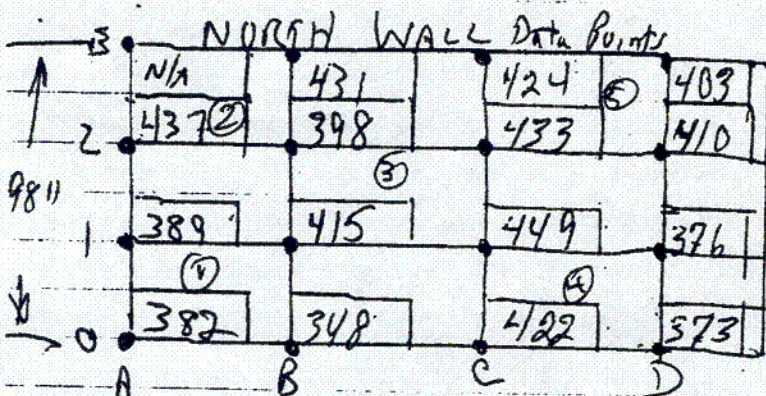 3 NORTH WALL Data Points
N/A 431 424 403
2 437 ② 398 433 ⑤ 410
98" ③
1 389 415 449 376
① ④
0 382 348 422 373
A B C D